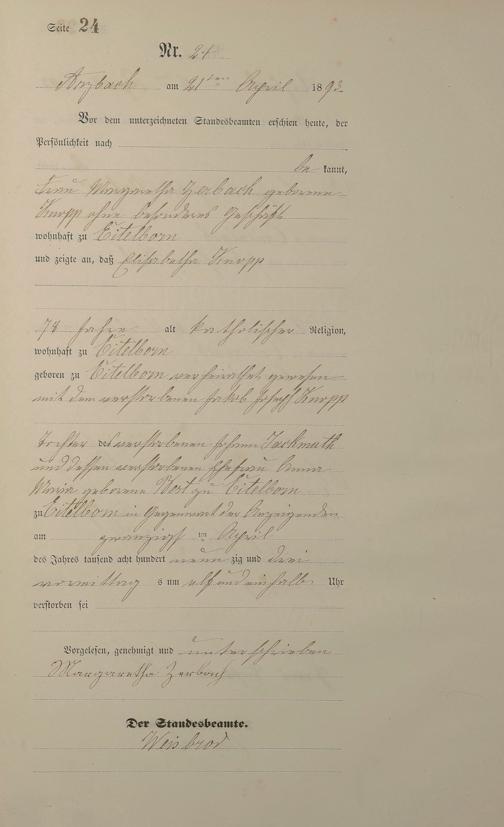 Seite 24
Nr. 24
Arzbach am 21ten April 1893
Vor dem unterzeichneten Standesbeamten erschien heute, der
Persönlichkeit nach
be kannt,
Frau Margaretha Zerbach geborene
Knopp ohne besonderes Geschäft
wohnhaft zu Eitelborn
und zeigte an, daß Elisabetha Knopp
78 Jahre alt katholischer Religion,
wohnhaft zu Eitelborn
geboren zu Eitelborn verheirathet gewesen
mit dem verstorbenen Jakob Joseph Knopp
Tochter des verstorbenen Johann
und dessen verstorbenen Ehefrau Anna
Maria geborene zu Eitelborn
zu Eitelborn in Gegenwart der Anzeigenden
am zwanzigst en April
des Jahres tausend acht hundert neun zig und drei
vormittag s um elf und einhalb Uhr
verstorben sei
Vorgelesen, genehmigt und unterschrieben
Margaretha Zerbach
Der Standesbeamte.
Weisbrod